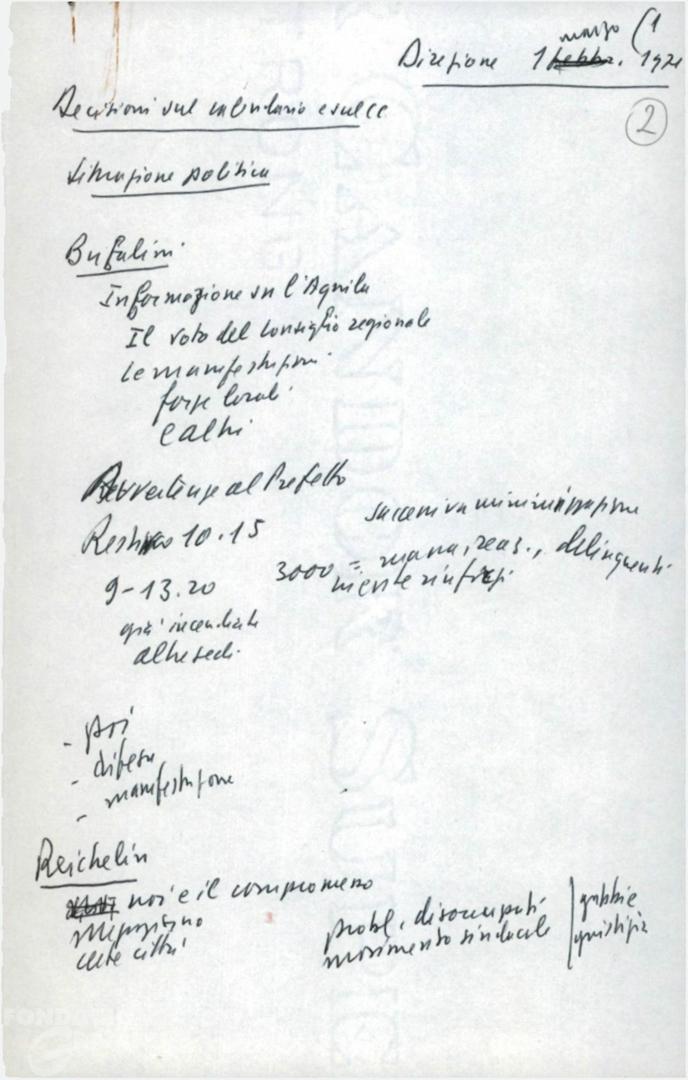 marzo (1
Direzione 1 febbr. 1971
2
Decisioni sul calendario e sulle
Situazione politica
Bufalini
Informazione su l'Aquila
Il voto del consiglio regionale
Le manifestazioni
forze locali
e altri
Avvertenze al Prefetto
successiva
Restivo 10.15
3000 = massa, reaz., delinquenti
niente rinforzi
9-13.20
già incendiate
altre sedi
- poi
- difesa
- manifestazione
Reichelin
noi e il compromesso
certe città
probl. disoccupati
movimento sindacale
gabbie
giustizia
FONDAZ